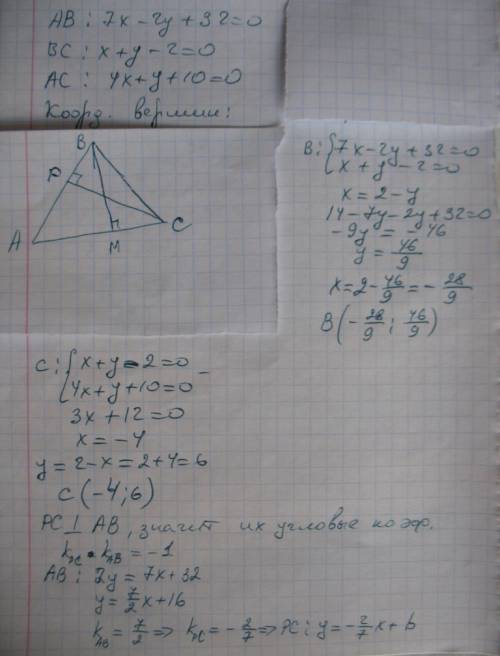 AB: 7x-2y+32=0
BC: x+y-2=0
AC: 4x+y+10=0
Коорд. вершин:
B
P
A
M
C
B: {7x-2y+32=0
x+y-2=0
x=2-y
14-7y-2y+32=0
-9y=-46
y=46/9
x=2-46/9=-28/9
B(-28/9; 46/9)
C: {x+y-2=0 -
4x+y+10=0
3x+12=0
x=-4
y=2-x=2+4=6
C(-4;6)
PC⊥AB, значит их угловые коэф.
k_PC • k_AB = -1
AB: 2y=7x+32
y=7/2x+16
k_AB=7/2 => k_PC=-2/7 => PC: y=-2/7x+b